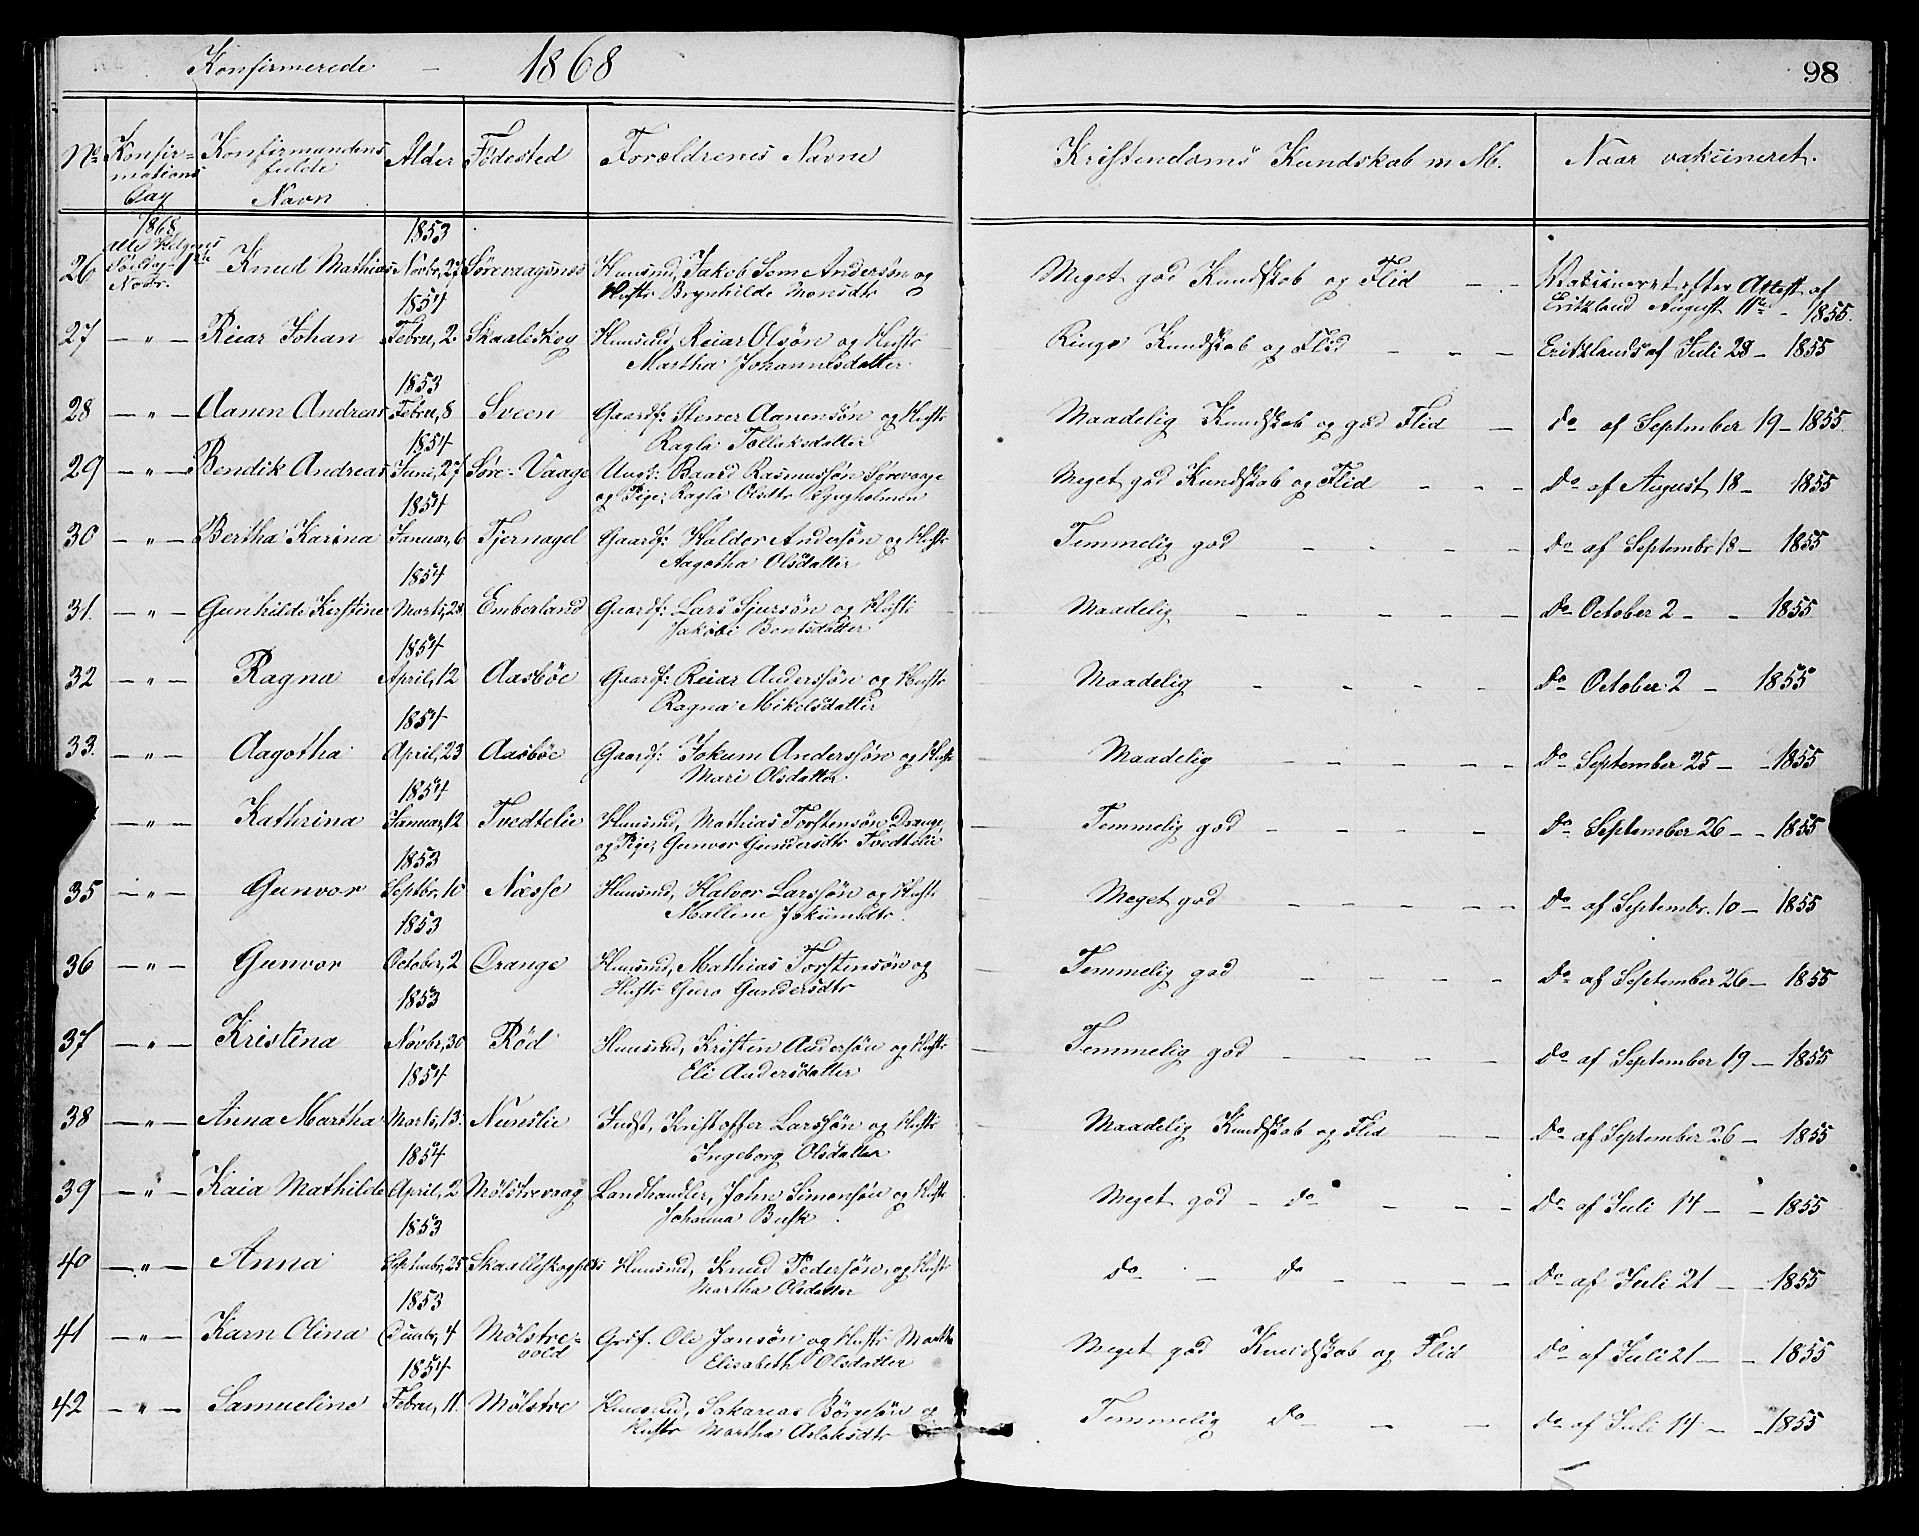 Konfirmerede - 1868
98
No Konfirmations Dag Konfirmandens fulde Navn Alder Födested Forældrenes Navne Kristendoms Kundskab m M. Naar vakcineret.
1868 1853
26 alle Helgens Söndag 1ste Novbr. Knud Mathias Novbr, 27 Sörevaagsnæs Huusmd, Jakob Sem Andersön og Meget god Kundskab og Flid - - Vakcineret efter Attest af
Hustr Brynhilde Monsdtr Erikland August 11te - 1855.
1854
27 - " - Reiar Johan Febru, 2 Skaaleskog Huusmd, Reiar Olsön og Hustr Ringe Kundskab og Flid - - - Eriklands af Juli 28 - 1855
Martha Johannesdatter
1853
28 - " - Aanen Andreas Febru, 8 Sveen Gaardf: Stener Aanensön og Hustr Maadelig Kundskab og god Flid - do af September 19 - 1855
Ragla Tollaksdatter
1854
29 - " - Bendik Andreas Juni, 27 Söre-Vaage Ungk: Baard Rasmussön Sörevaage Meget god Kundskab og Flid - - - do af August 18 - 1855
og Pige, Ragla Olsdtr
1854
30 - " - Bertha Karina Januar, 6 Tjernagel Gaardf: Haldor Andersön og Hustr Temmelig god - - - - do af Septembr 18 - 1855
Aagotha Olsdatter
1854
31. - " - Gunhilde Kirstine Marts, 28 Emberland Gaardf: Lars Sjursön og Hustr Maadelig - - - - do October 2 - - 1855
Jakobi Bentsdatter
1854
32 - " - Ragna April, 12 Aasböe Gaardf: Reiar Anderssön og Hustr Maadelig - - - - do October 2 - 1855
Ragna Mikelsdatter
1854
33. - " - Aagotha April, 23 Aasböe Gaardf: Jokum Anderssön og Hustr Maadelig - - - - - do September 25 - - 1855
Mari Olsdatter
1854
- " - Kathrina Januar, 12 Tvedtelie Huusmd, Mathias Torstensön Drange, Temmelig god - - - - do September 26 - - 1855
og Pige, Gunvor Gundersdtr Tvedtelie
1853
35 - " - Gunvor Septbr, 10 Næsse Huusmd, Halvor Larssön og Hustr Meget god - - - - - do af Septembr. 10 - 1855
Mallene Jokumsdtr.
1853
36 - " - Gunvor October, 2 Drange Huusmd, Mathias Torstensön og Temmelig god - - - - do af September 26 - 1855
Hustr Guro Gundersdtr
1853
37 - " - Kristina Novbr, 30 Röd Huusmd, Kristen Andersön og Hustr Temmelig god - - - - do af September 19 - 1855
Eli Andersdatter
1854
38 - " - Anna Martha Marts, 13. Nunslie Indst, Kristoffer Larssön og Hustr Maadelig Kundskab og Flid - - do af September 26 - 1855
Ingeborg Olsdatter
1854
39 - " - Kaia Mathilde April, 2 Mölstrevaag Landhandler, John Simonsön og Hustr Meget god - do - - - do af Juli 14 - - 1855
Johanna Busk.
1853
40 - " - Anna Septmbr, 25 Huusmd, Knud Pedersön, og Hustr do - do - - - - do af Juli 21 - - 1855
Martha Olsdatter
1853
41 - " - Karn Olina Dcmbr, 4 Mölstre- Grdf. Ole Jansön og Hustr Martha Meget god Kundskab og Flid do af Juli 21 - - 1855
vold Elisabeth Olsdatter
1854
42 - " - Samueline Febru, 11. Mölstre Huusmd, Sakarias Börgesön og Temmelig do - - do af Juli 14 - - 1855
Hustr Martha Aslaksdtr